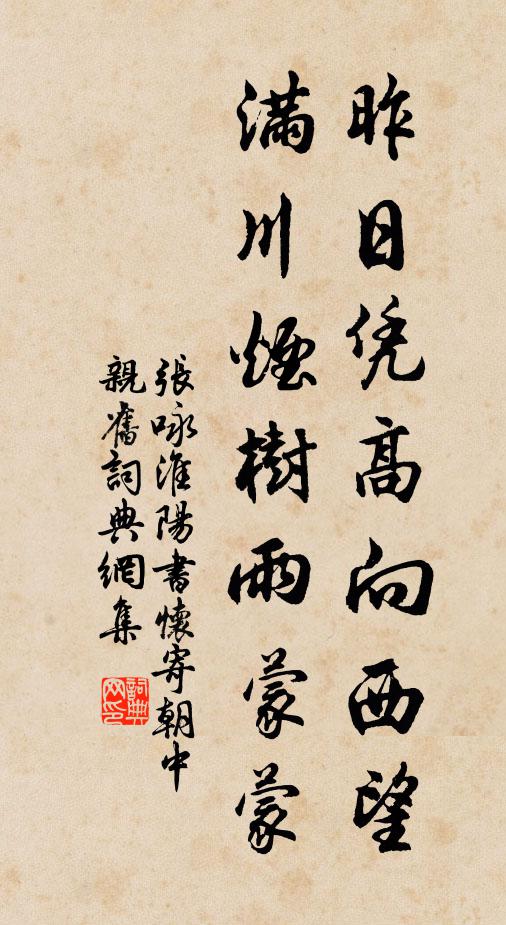 昨日凭高向西望
滿川煙樹雨蒙蒙
張咏淮陽書懷寄朝中
親舊詞典網集
詞典网印